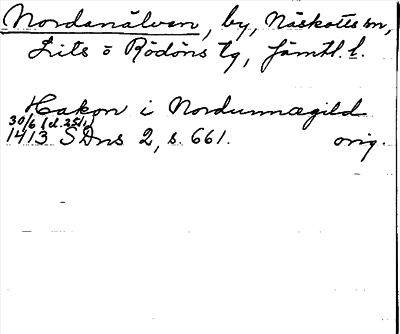 Nordanälven, by, Näskotts sn,
Lits o Rödöns tg, Jämtl. l.
Hakon i Nordunnægild
30/6 (d. 25/1)
1413 SDns 2, s. 661. orig.